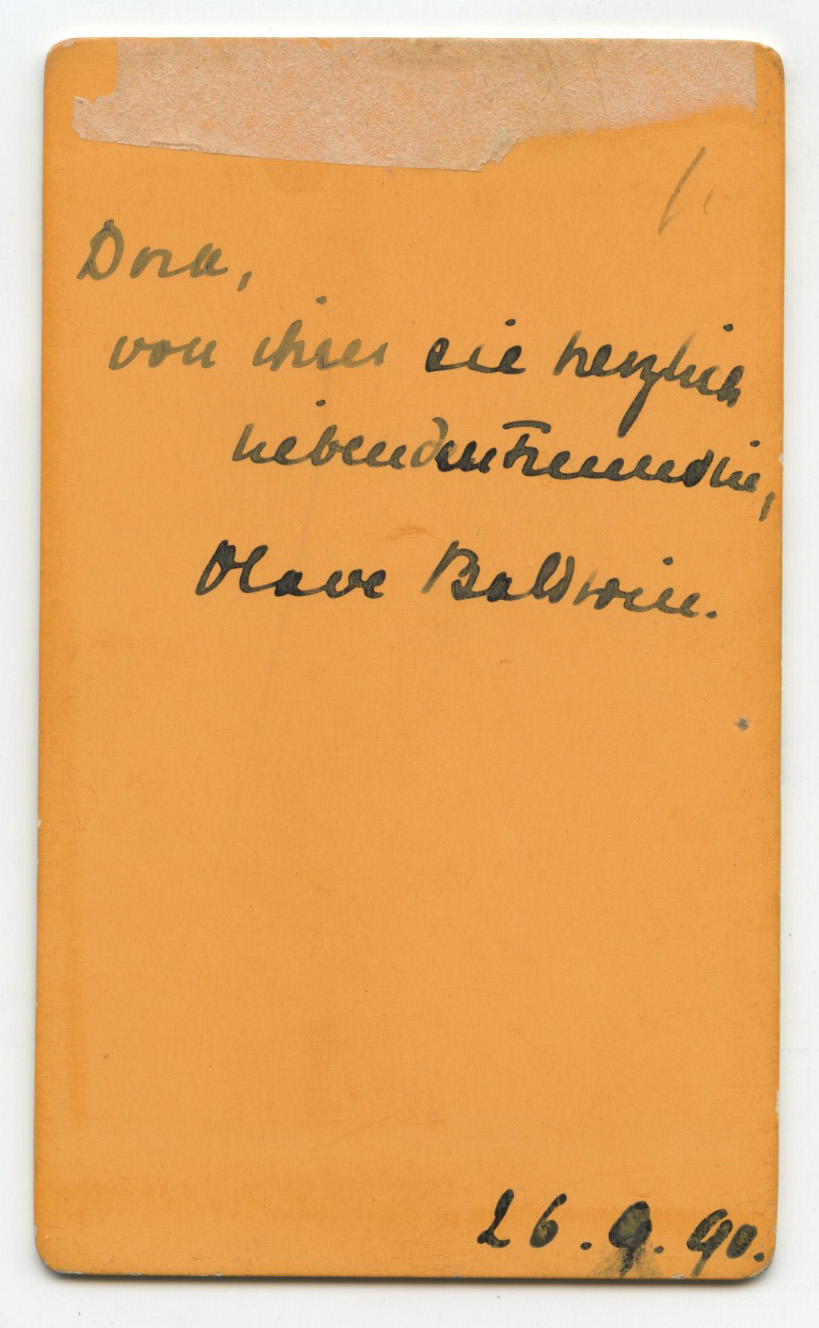 Dora,
von ihrer sie herzlich
liebenden Freundin,
Olave Baldwin.
26.9.90.